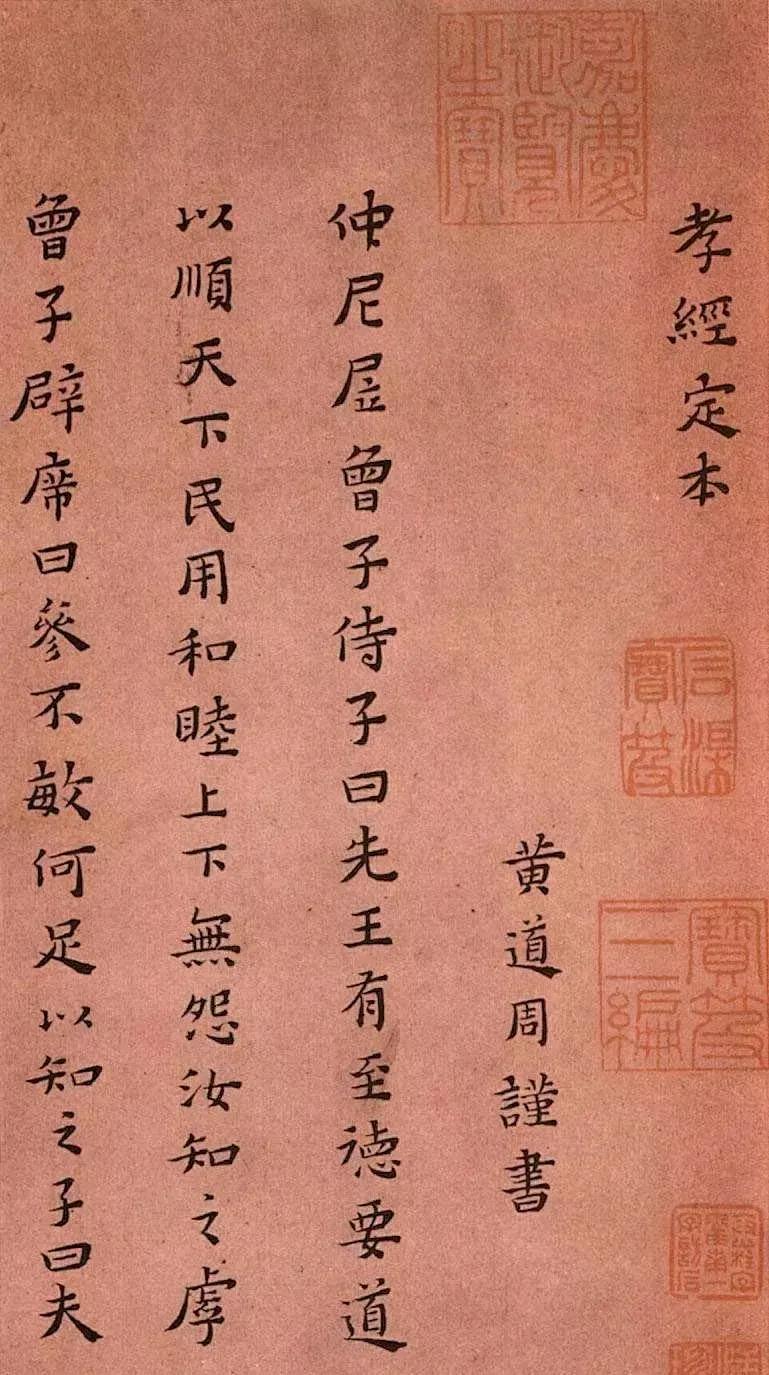 孝經定本
黃道周謹書
仲尼凥曾子侍子曰先王有至德要道
以順天下民用和睦上下無怨汝知之虖
曾子辟席曰參不敏何足以知之子曰夫
嘉慶御覽之寶
石渠寶笈
寶笈三編